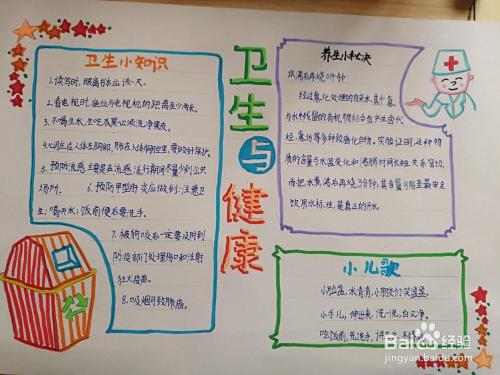 卫生小知识
1.读写时,眼离书本应该一尺。
2.看电视时,座位与电视机的距离至少两米。
3.不喝生水,生吃瓜果必须洗净果皮。
4.心脏在人体左胸部,肺在人体胸腔里,要好好保护。
5.预防流感主要是在流感流行期间尽量少到公共
场所。 6.预防甲型肝炎应做到:注意卫
生;喝开水;饭前便后要洗手。
7.被狗咬后一定要及时到
防疫部门处理伤口和注射
狂犬疫苗。
8.吸烟可致肺癌。
卫生与健康
养生小秘决
水沸后再烧3分钟
经过氯化处理的自来水,其中氯
与水中残留的有机物结合会产生卤代
烃、氯仿等多种致癌化合物。实验证明,这种物
质的含量与水温变化和沸腾时间长短关系密切,
而把水煮沸后再烧3分钟,其含量可降至最安全
饮用水标准,是真正的开水
小儿歌
小脸盆,水清清,小朋友们笑盈盈,
小手儿,伸出来,洗一洗,白又净,
吃饭前,先洗手,讲卫生
Baidu经验
jingyan.baidu.com